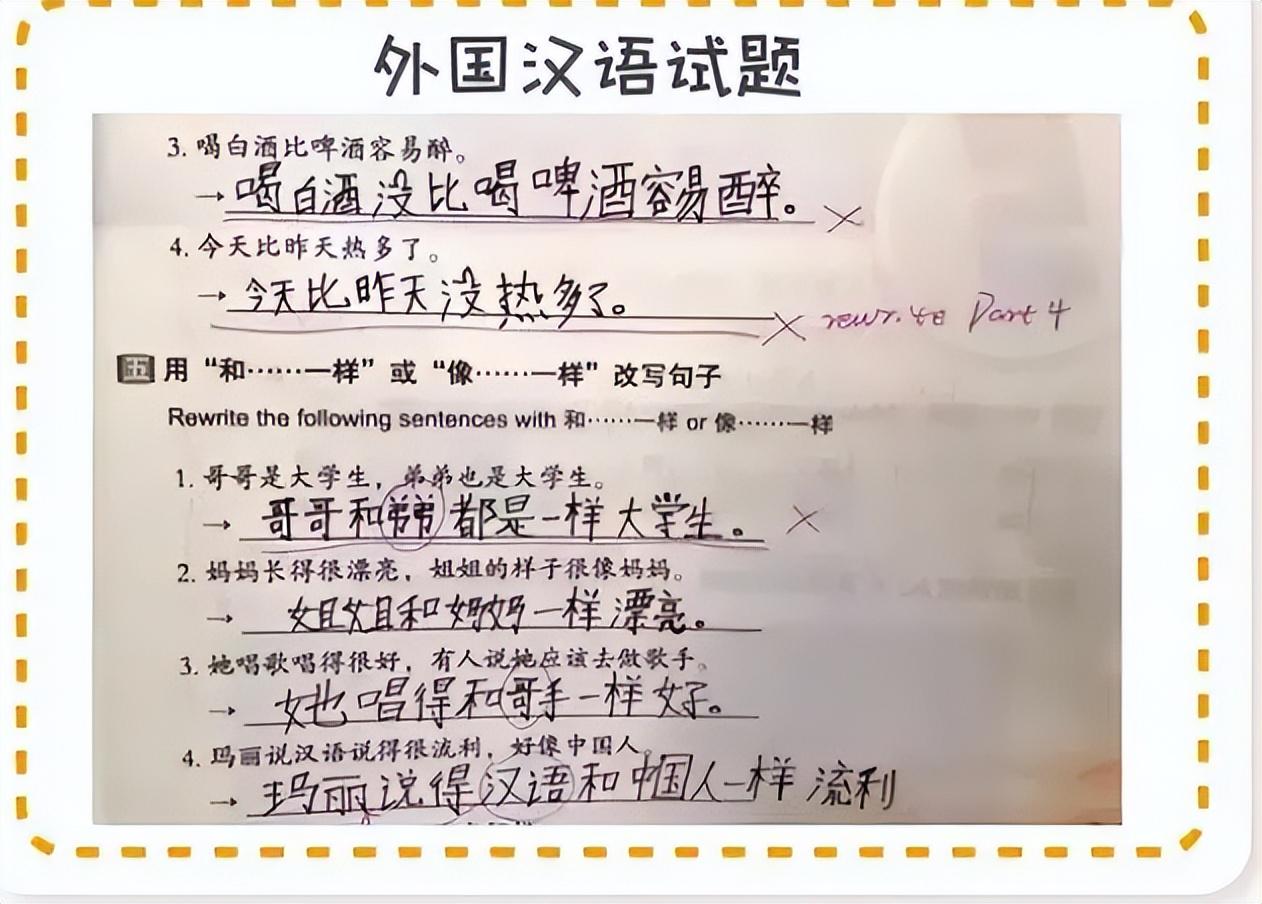 外国汉语试题
3. 喝白酒比啤酒容易醉。
→喝白酒没比喝啤酒容易醉。
4. 今天比昨天热多了。
→今天比昨天没热多了。
rewrite Part 4
五 用“和……一样”或“像……一样”改写句子
Rewrite the following sentences with 和……一样 or 像……一样
1. 哥哥是大学生，弟弟也是大学生。
→ 哥哥和弟弟都是一样大学生。
2. 妈妈长得很漂亮，姐姐的样子很像妈妈。
→ 姐姐和妈妈一样漂亮。
3. 她唱歌唱得很好，有人说她应该去做歌手。
→ 她唱得和哥手一样好。
4. 玛丽说汉语说得很流利，好像中国人。
→ 玛丽说得汉语和中国人一样流利